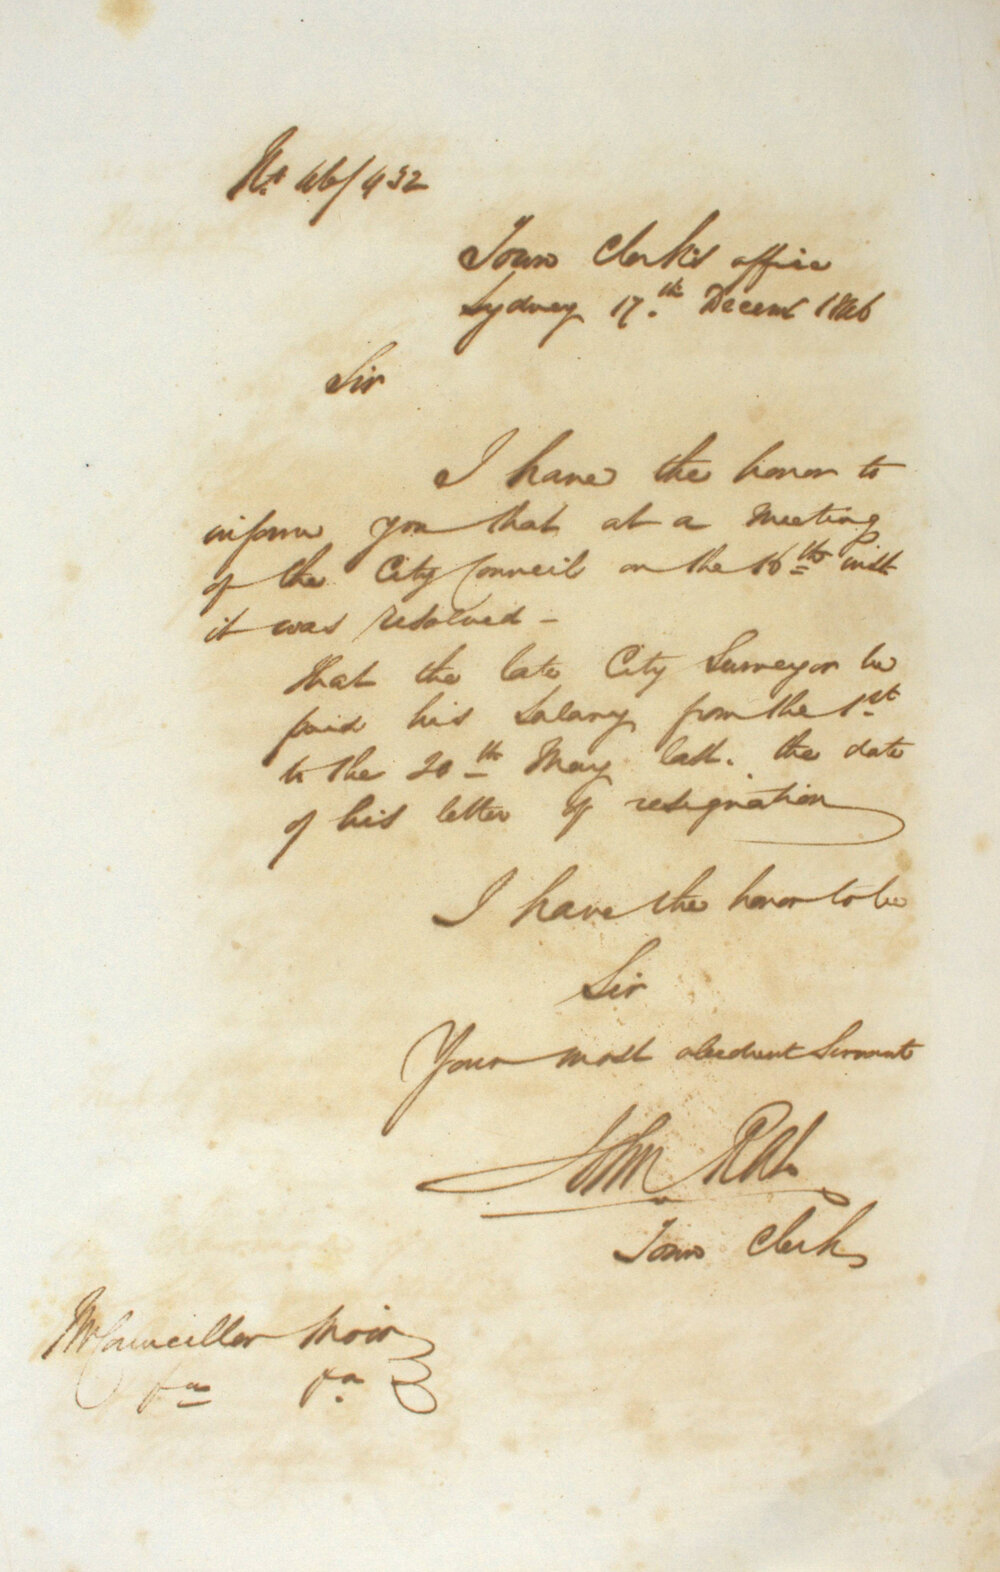 No 46/432
Town Clerk's office
Sydney 17.th Decemr 1846
Sir
I have the honor to
inform you that at a Meeting
of the City Council on the 16th inst
it was resolved -
that the late City Surveyor be
paid his Salary from the 1st
to the 20th May last. the date
of his letter of resignation
I have the honor to be
Sir
Your most obedient Servant
John Rae
Town Clerk
Mr Councillor Moir